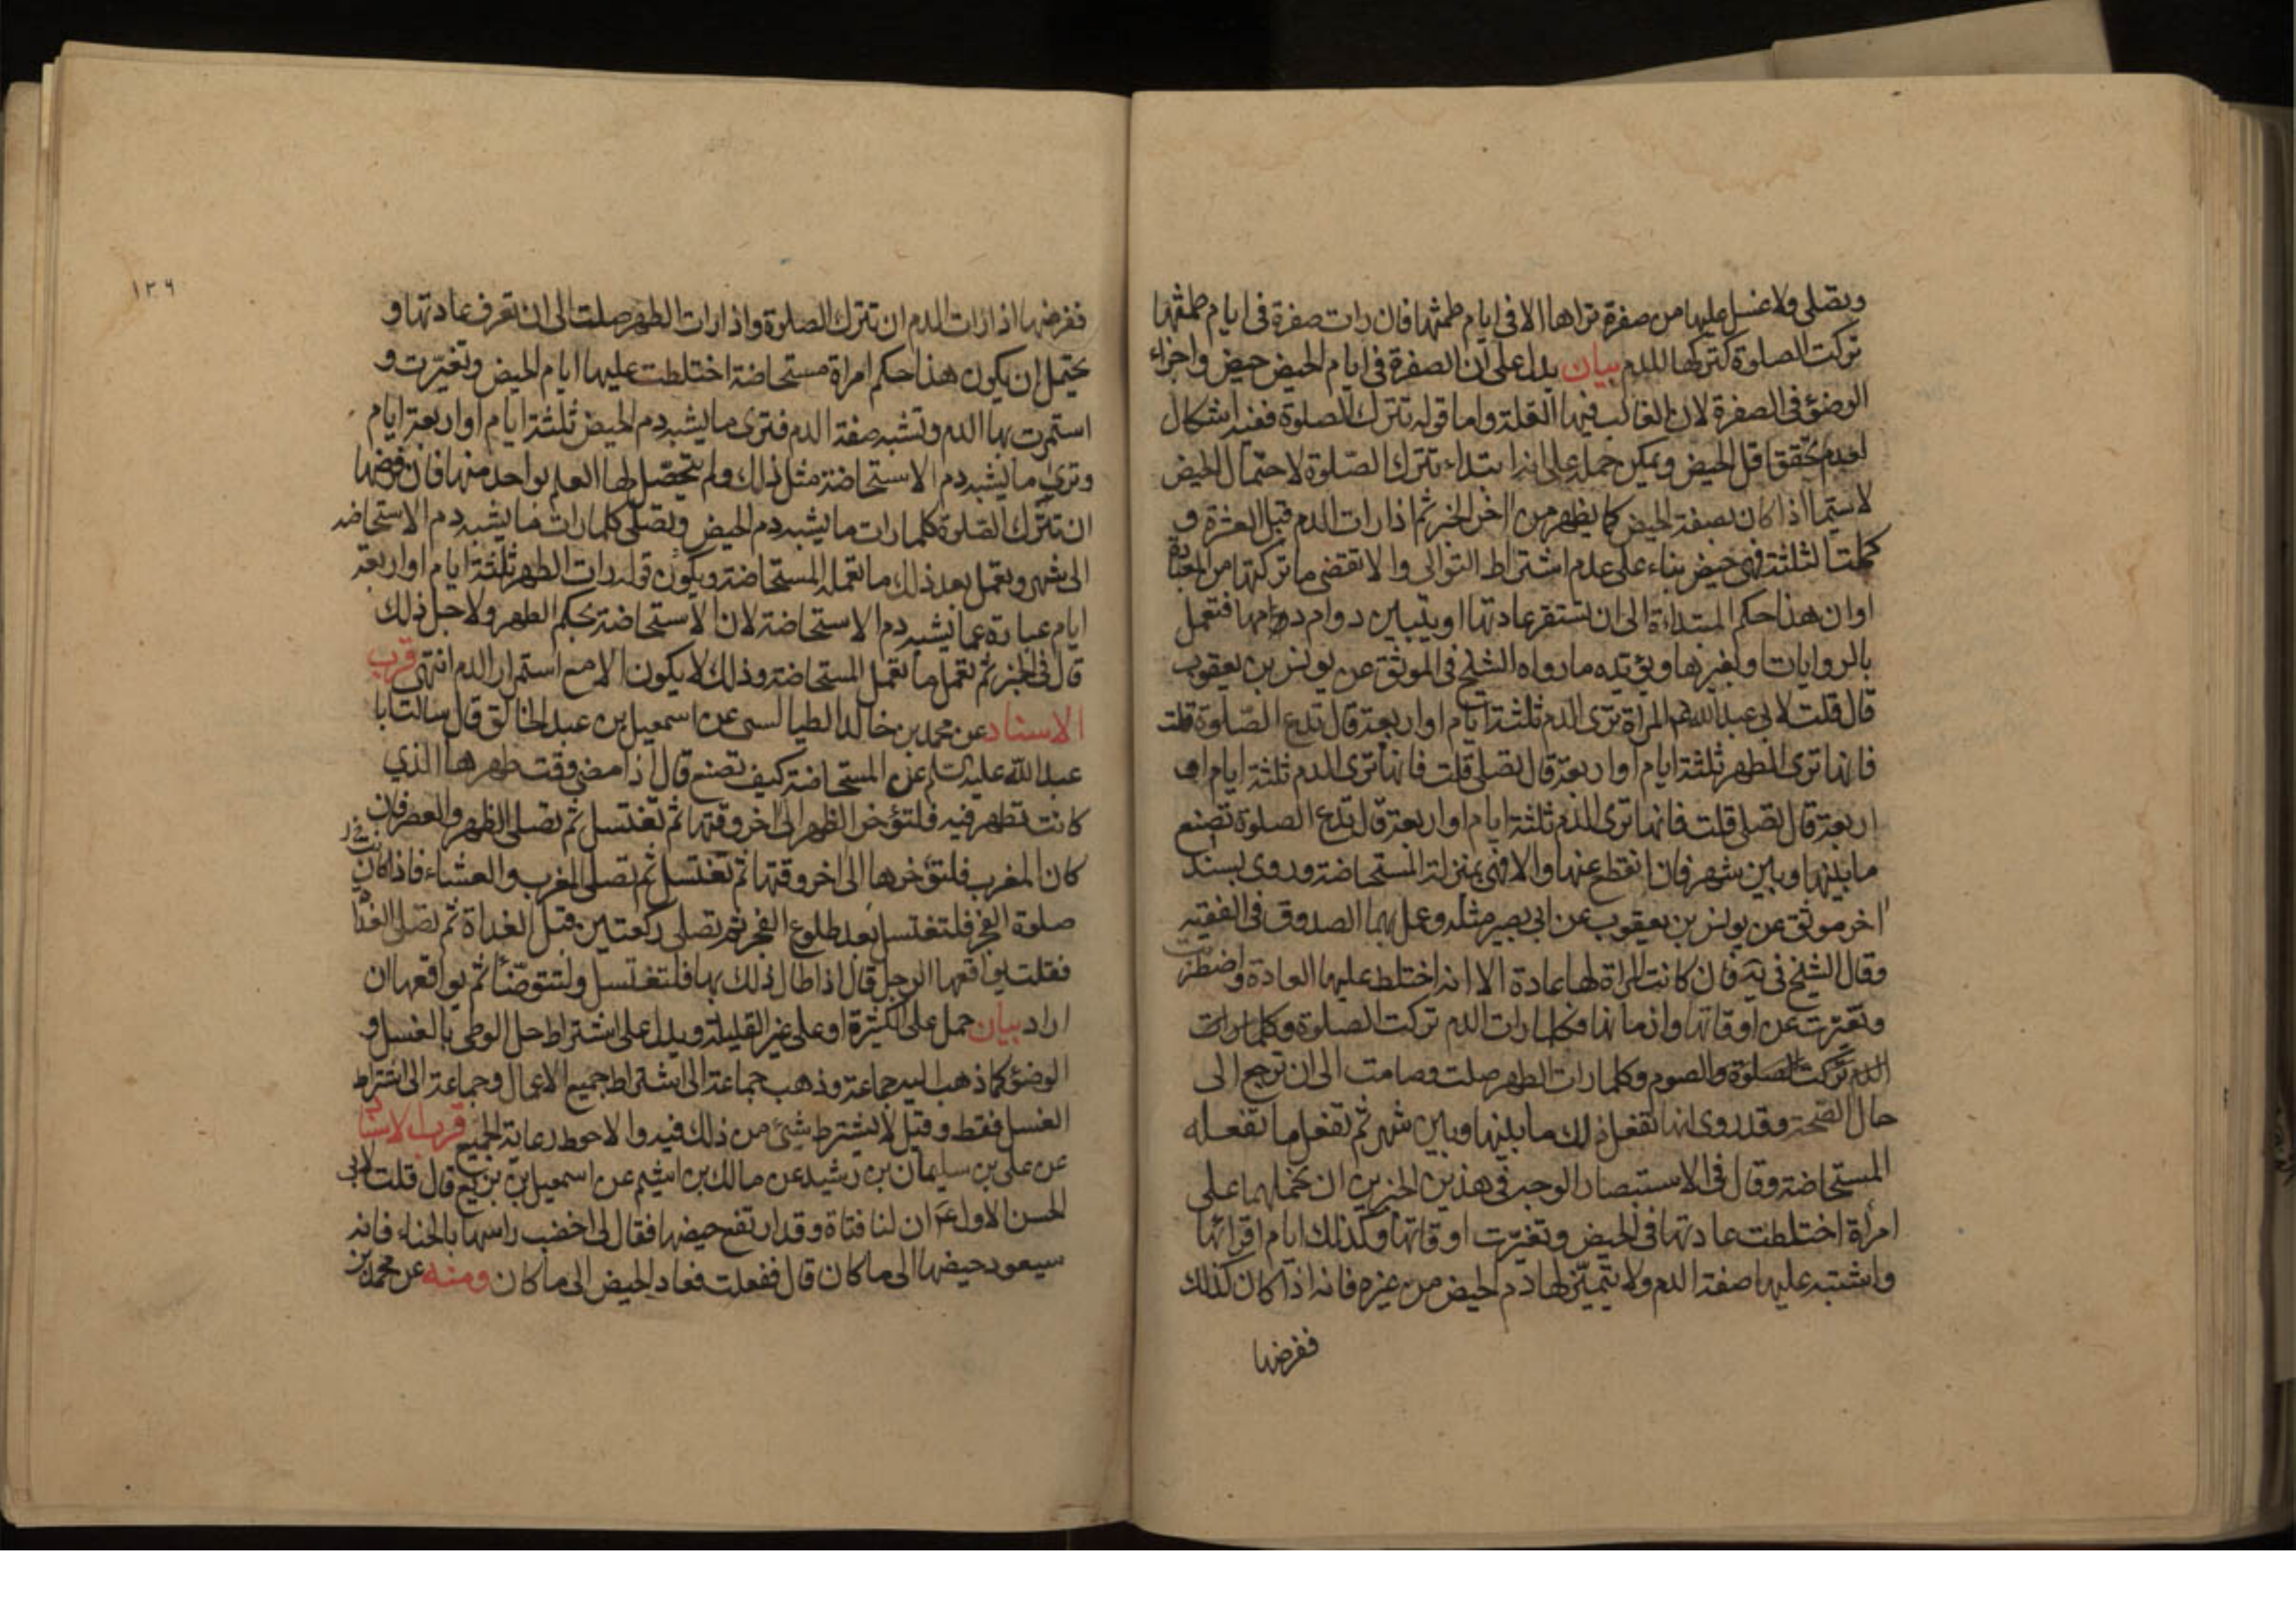 وتصلى ولا غسل عليها من صفرة تراها الا فى ايام طمثها فان رات صفرة فى ايام طمثها
تركت الصلوة كتركها للدم بيان يدل على ان الصفرة فى ايام الحيض حيض واجزاء
الوضوء فى الصفرة لان الغالب فيها القلة واما قوله تترك الصلوة ففيه اشكال
لعدم تحقق اقل الحيض ويمكن حمله على انه ابتداء تترك الصلوة لاحتمال الحيض
لا سيما اذا كان بصفة الحيض كما يظهر من اخر الخبر ثم اذا رات الدم قبل العشرة و
كملت الثلثة فهى حيض بناء على عدم اشتراط التوالى والا تقضى ما تركتها من العبادة
او ان هذا حكم المبتداة الى ان تستقر عادتها او يتبين دوام دمها فتعمل
بالروايات او بغيرها ويؤيده ما رواه الشيخ فى الموثق عن يونس بن يعقوب
قال قلت لابى عبد الله ع المراة ترى الدم ثلثة ايام او اربعة قال تدع الصلوة قلت
فانها ترى الطهر ثلثة ايام او اربعة قال تصلى قلت فانها ترى الدم ثلثة ايام او
اربعة قال تصلى قلت فانها ترى الدم ثلثة ايام او اربعة قال تدع الصلوة تصنع
ما بينها وبين شهر فان انقطع عنها والا فهى بمنزلة المستحاضة وروى بسند
اخر موثق عن يونس بن يعقوب عن ابى بصير مثله وعمل بهما الصدوق فى الفقيه
وقال الشيخ فى يه فان كانت المراة لها عادة الا انه اختلط عليها العادة واضطربت
وتغيرت عن اوقاتها وازمانها فكلما رات الدم تركت الصلوة وكلما رات
الدم تركت الصلوة والصوم وكلما رات الطهر صلت وصامت الى ان ترجع الى
حال الصحة وقد روى انها تفعل ذلك ما بينها وبين شهر ثم تفعل ما تفعله
المستحاضة وقال فى الاستبصار الوجه فى هذين الخبرين ان نحملهما على
امرأة اختلطت عادتها فى الحيض وتغيرت اوقاتها وكذلك ايام اقرائها
واشتبه عليها صفة الدم ولا يتميز لها دم الحيض من غيره فانه اذا كان كذلك
ففرضها
١٢٦
ففرضها اذا رات الدم ان تترك الصلوة واذا رات الطهر صلت الى ان تعرف عادتها و
يحتمل ان يكون هذا حكم امراة مستحاضة اختلطت عليها ايام الحيض وتغيرت و
استمرت بها الدم وتشبه صفة الدم فترى ما يشبه دم الحيض ثلثة ايام او اربعة ايام
وترى ما يشبه دم الاستحاضة مثل ذلك ولم يتحصل لها العلم بواحد منها فان فرضها
ان تترك الصلوة كلما رات ما يشبه دم الحيض وتصلى كلما رات ما يشبه دم الاستحاضة
الى شهر وتعمل بعد ذلك ما تعمله المستحاضة ويكون قوله رات الطهر ثلثة ايام او اربعة
ايام عبارة عما يشبه دم الاستحاضة لان الاستحاضة بحكم الطهر ولاجل ذلك
قال فى الخبر ثم تعمل ما تعمل المستحاضة وذلك لا يكون الا مع استمرار الدم انتهى قرب
الاسناد عن محمد بن خالد الطيالسى عن اسمعيل بن عبد الخالق قال سالت ابا
عبد الله عليه السلام عن المستحاضة كيف تصنع قال اذا مضى وقت طهرها الذي
كانت تطهر فيه فلتؤخر الظهر الى اخر وقتها ثم تغتسل ثم تصلى الظهر والعصر فان
كان المغرب فلتؤخرها الى اخر وقتها ثم تغتسل ثم تصلى المغرب والعشاء فاذا كان
صلوة الفجر فلتغتسل بعد طلوع الفجر ثم تصلى ركعتين قبل الغداة ثم تصلى الغداة
فقلت يواقعها الرجل قال اذا طال ذلك بها فلتغتسل ولتتوضأ ثم يواقعها ان
اراد بيان حمل على الكثيرة او على غير القليلة ويدل على اشتراط حل الوطى بالغسل و
الوضوء كما ذهب اليه جماعة وذهب جماعة الى اشتراط جميع الاعمال وجماعة الى اشتراط
الغسل فقط وقيل لا يشترط شئ من ذلك فيه والاحوط رعاية الجميع قرب الاسناد
عن على بن سليمان بن رشيد عن مالك بن اشيم عن اسمعيل بن بزيع قال قلت لابى
الحسن الاول ع ان لنا فتاة وقد ارتفع حيضها فقال لى اخضب راسها بالحناء فانه
سيعود حيضها الى ما كان قال ففعلت فعاد الحيض الى ما كان ومنه عن محمد بن